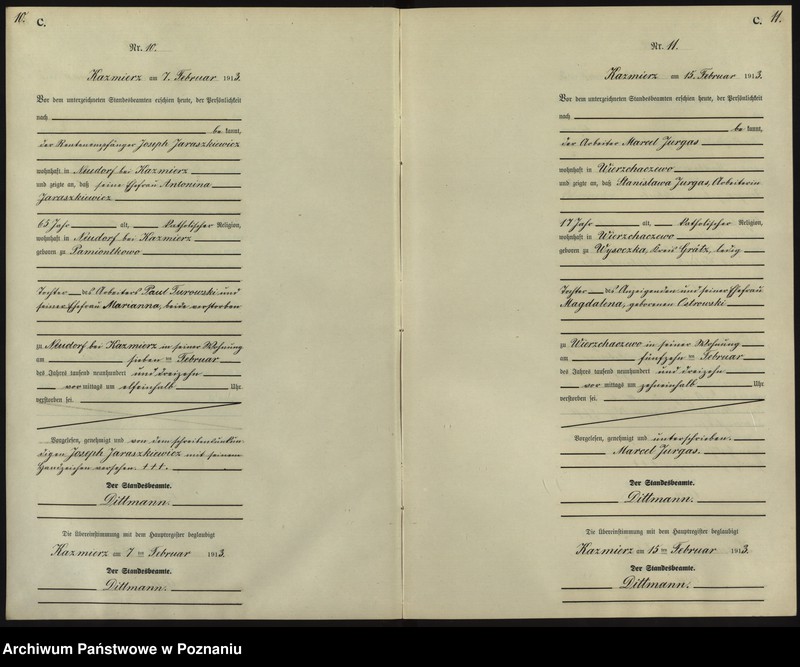 10.
C.
Nr. 10.
Kazmierz am 7. Februar 1913.
Vor dem unterzeichneten Standesbeamten erschien heute, der Persönlichkeit
nach
be kannt,
der Rentenempfänger Joseph Jaraszkiewicz
wohnhaft in Neudorf bei Kazmierz
und zeigte an, daß seine Ehefrau Antonina
Jaraszkiewicz
65 Jahr alt, katholischer Religion,
wohnhaft in Neudorf bei Kazmierz
geboren zu Pamiontkowo
Tochter des Arbeiters Paul Turowski und
seiner Ehefrau Marianna, beide verstorben
zu Neudorf bei Kazmierz in seiner Wohnung
am sieben ten Februar
des Jahres tausend neunhundert und dreizehn
vor mittags um elfeinhalb Uhr
verstorben sei.
Vorgelesen, genehmigt und von dem schreibenskun
digen Joseph Jaraszkiewicz mit seinem
Handzeichen versehen. +++.
Der Standesbeamte.
Dittmann.
Die Übereinstimmung mit dem Hauptregister beglaubigt
Kazmierz am 7 ten Februar 1913.
Der Standesbeamte.
Dittmann.
C.
11.
Nr. 11.
Kazmierz am 15. Februar 1913.
Vor dem unterzeichneten Standesbeamten erschien heute, der Persönlichkeit
nach
be kannt,
der Arbeiter Marcel Jurgas
wohnhaft in Wierzchaczewo
und zeigte an, daß Stanislawa Jurgas, Arbeiterin
17 Jahr alt, katholischer Religion,
wohnhaft in Wierzchaczewo
geboren zu Wysoczka, Kreis Grätz, ledig
Tochter des Anzeigenden und seiner Ehefrau
Magdalena, geborenen Ostrowski
zu Wierzchaczewo in seiner Wohnung
am fünfzehn ten Februar
des Jahres tausend neunhundert und dreizehn
vor mittags um zehneinhalb Uhr
verstorben sei.
Vorgelesen, genehmigt und unterschrieben.
Marcel Jurgas.
Der Standesbeamte.
Dittmann.
Die Übereinstimmung mit dem Hauptregister beglaubigt
Kazmierz am 15 ten Februar 1913.
Der Standesbeamte.
Dittmann.
Archiwum Państwowe w Poznaniu